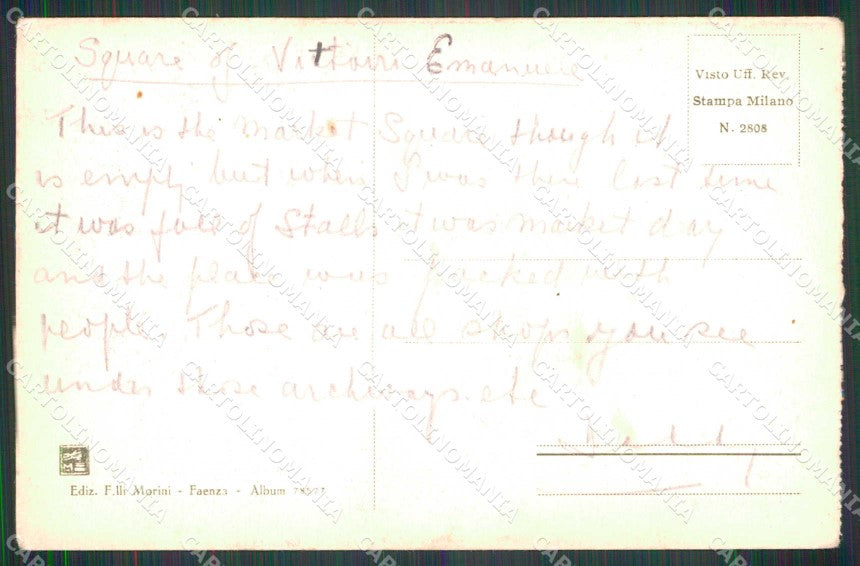 Square of Vittorri Emanuele
Visto Uff. Rev.
Stampa Milano
N. 2808
This is the market Square though it
is empty but when I was there last time
it was full of Stalls it was market day
and the place was packed with
people. Those are all shops you see
under those archways. etc
Daddy
Ediz. F.lli Morini - Faenza - Album
CARTOLINOMANIA